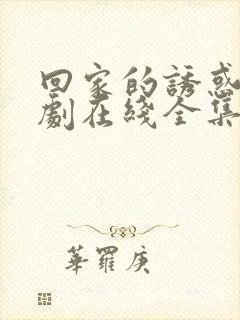 回家的誘惑
劇在綫全集
華羅庚